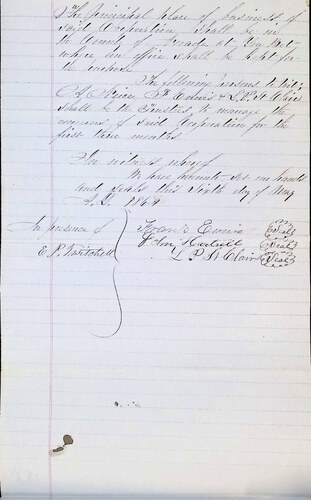 The principal place of business of
Said Corporation Shall be in
the County of Nevada at You Bet
where an office shall be kept for
the
The following persons to wit;
& L. P. St Clair
Shall be the Trustees to manage the
concerns of Said Corporation for the
first three months
In witness whereof
We have hereunto set our hands
and seals this Sixth day of May
A.D. 1869
In presence of
E. P. Mitchell
Francis
John Hartwell
L. P. St Clair
Seal
Seal
Seal